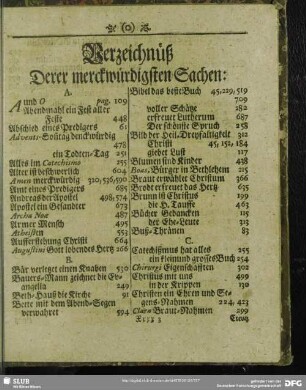 (o)
Verzeichnüß
Derer merckwürdigsten Sachen:
A.
A und O pag. 109
Abendmahl ein Fest aller
Feste 448
Abschied eines Predigers 61
Advents-Sontag denckwürdig
478
ein Todten-Tag 251
Alles im Catechismo 255
Alter ist beschwerlich 604
Amen merckwürdig 310,536,590
Amt eines Predigers 685
Andreas der Apostel 498,574
Apostel ein Gesandter 673
Archa Noæ 487
Armer Mensch 495
Atheisten 553
Aufferstehung Christi 664
Augustini Gott lobendes Hertz 266
B.
Bär verletzt einen Knaben 530
Bauers-Mann zeichnet die Ev-
angelia 249
Beth-Hauß die Kirche 91
Bette mit dem Abend-Segen
verwahret 594
Bibel das beste Buch 45,229,519
709
voller Schätze 182
erfreuet Lutherum 687
Der schönste Spruch 258
Bild der Heil. Dreyfaltigkeit 312
Christi 45,152,184
giebet Lust 117
Blumen sind Kinder 438
Boas, Bürger in Bethlehem 115
Braut erwählet Christum 366
Brodt erfreuet das Hertz 635
Brunn ist Christus 199
die H. Tauffe 463
Bücher Gedancken 115
der Ehe-Leute 313
Buß-Thränen 83
C.
Catechismus hat alles 255
ein klein und grosses Buch 254
Chirurgi Eigenschafften 302
Christus mit uns 499
in der Krippen 130
Christen ein Ehren und Se-
gens-Nahmen 224,423
Clara Braut-Nahmen 299
Xxxx 3
Creutz